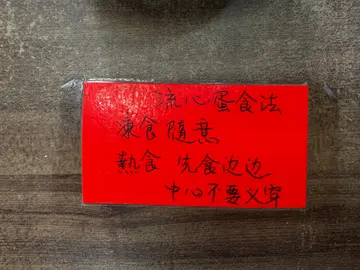 流心蛋食法
凍食 隨意
熱食 先食边边
中心不要义穿